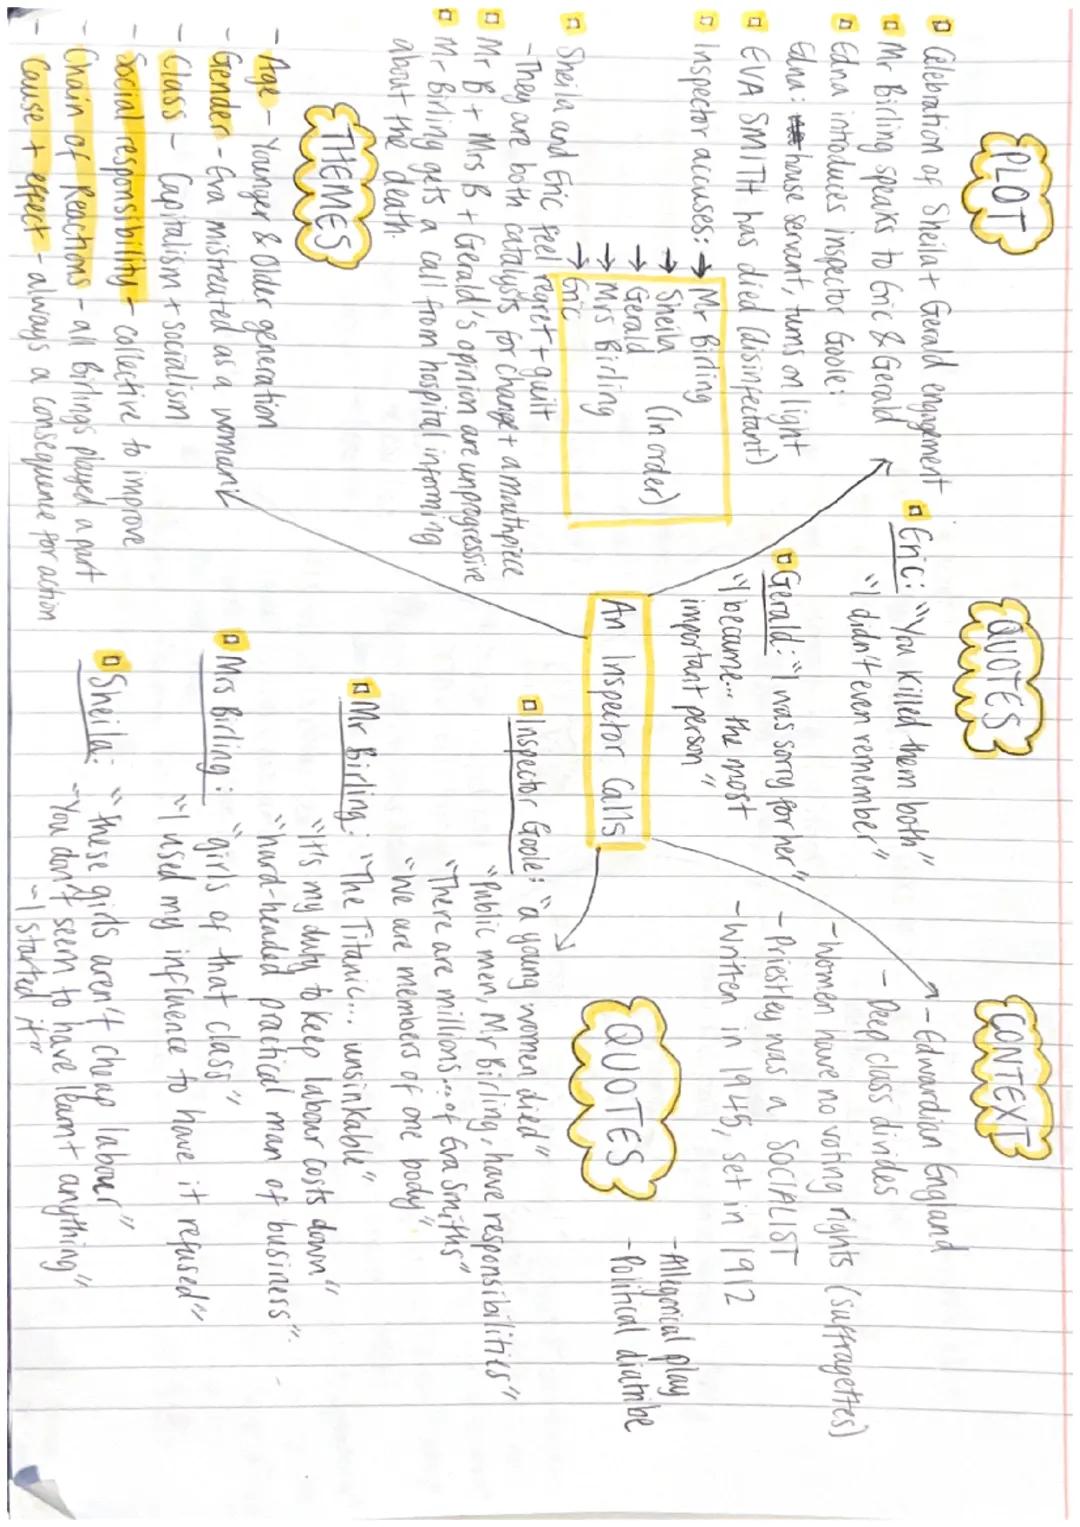 PLOT
Celebration of Sheila + Gerald engagement
Mr Birling speaks to Eric & Gerald
Edna introduces inspector Goole:
Edna: house servant, turns on light
EVA SMITH has died (disinfectant)
Inspector accuses: → Mr Birling
→ Sheila
→ Gerald (In order)
→ Mrs Birling
→ Eric
Sheila and Eric feel regret + guilt
- They are both catalysts for change + a mouthpiece
Mr B + Mrs B + Gerald's opinion are unprogressive
Mr Birling gets a call from hospital informing
about the death.
THEMES
- Age - Younger & Older generation
- Gender - Eva mistreated as a women
- Class - Capitalism + socialism
- Social responsibility - collective to improve
- Chain of Reactions - all Birlings played a part
- Cause + effect - always a consequence for action
QUOTES
Eric: "You killed them both"
"I didn't even remember"
Gerald: "I was sorry for her"
"I became... the most
important person"
An Inspector Calls
CONTEXT
- Edwardian England
- Deep class divides
- Women have no voting rights (suffragettes)
- Priestley was a SOCIALIST
- Written in 1945, set in 1912
- Allegorical play
- Political diatribe
QUOTES
Inspector Goole: "a young women died"
"Public men, Mr Birling, have responsibilities"
"There are millions... of Eva Smiths"
"We are members of one body"
Mr Birling: "The Titanic... unsinkable"
"It's my duty to keep labour costs down"
"hard-headed practical man of business".
Mrs Birling: "girls of that class"
"I used my influence to have it refused"
Sheila: "These girls aren't cheap labour"
"You don't seem to have learnt anything"
"I started it"